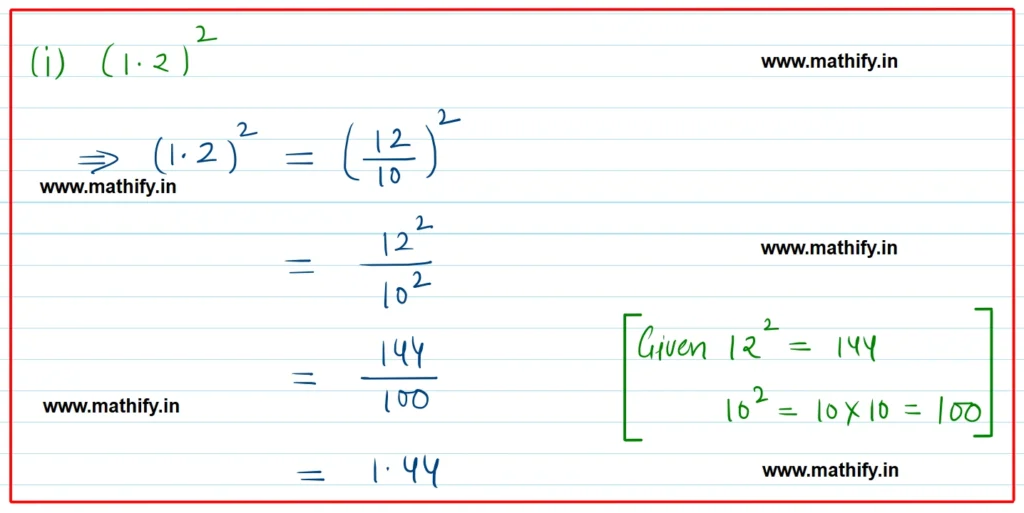 (i) (1.2)²
www.mathify.in
⇒ (1.2)² = (12/10)²
www.mathify.in
= 12²/10²
www.mathify.in
[Given 12² = 144
= 144/100
10² = 10×10 = 100]
www.mathify.in
= 1.44
www.mathify.in